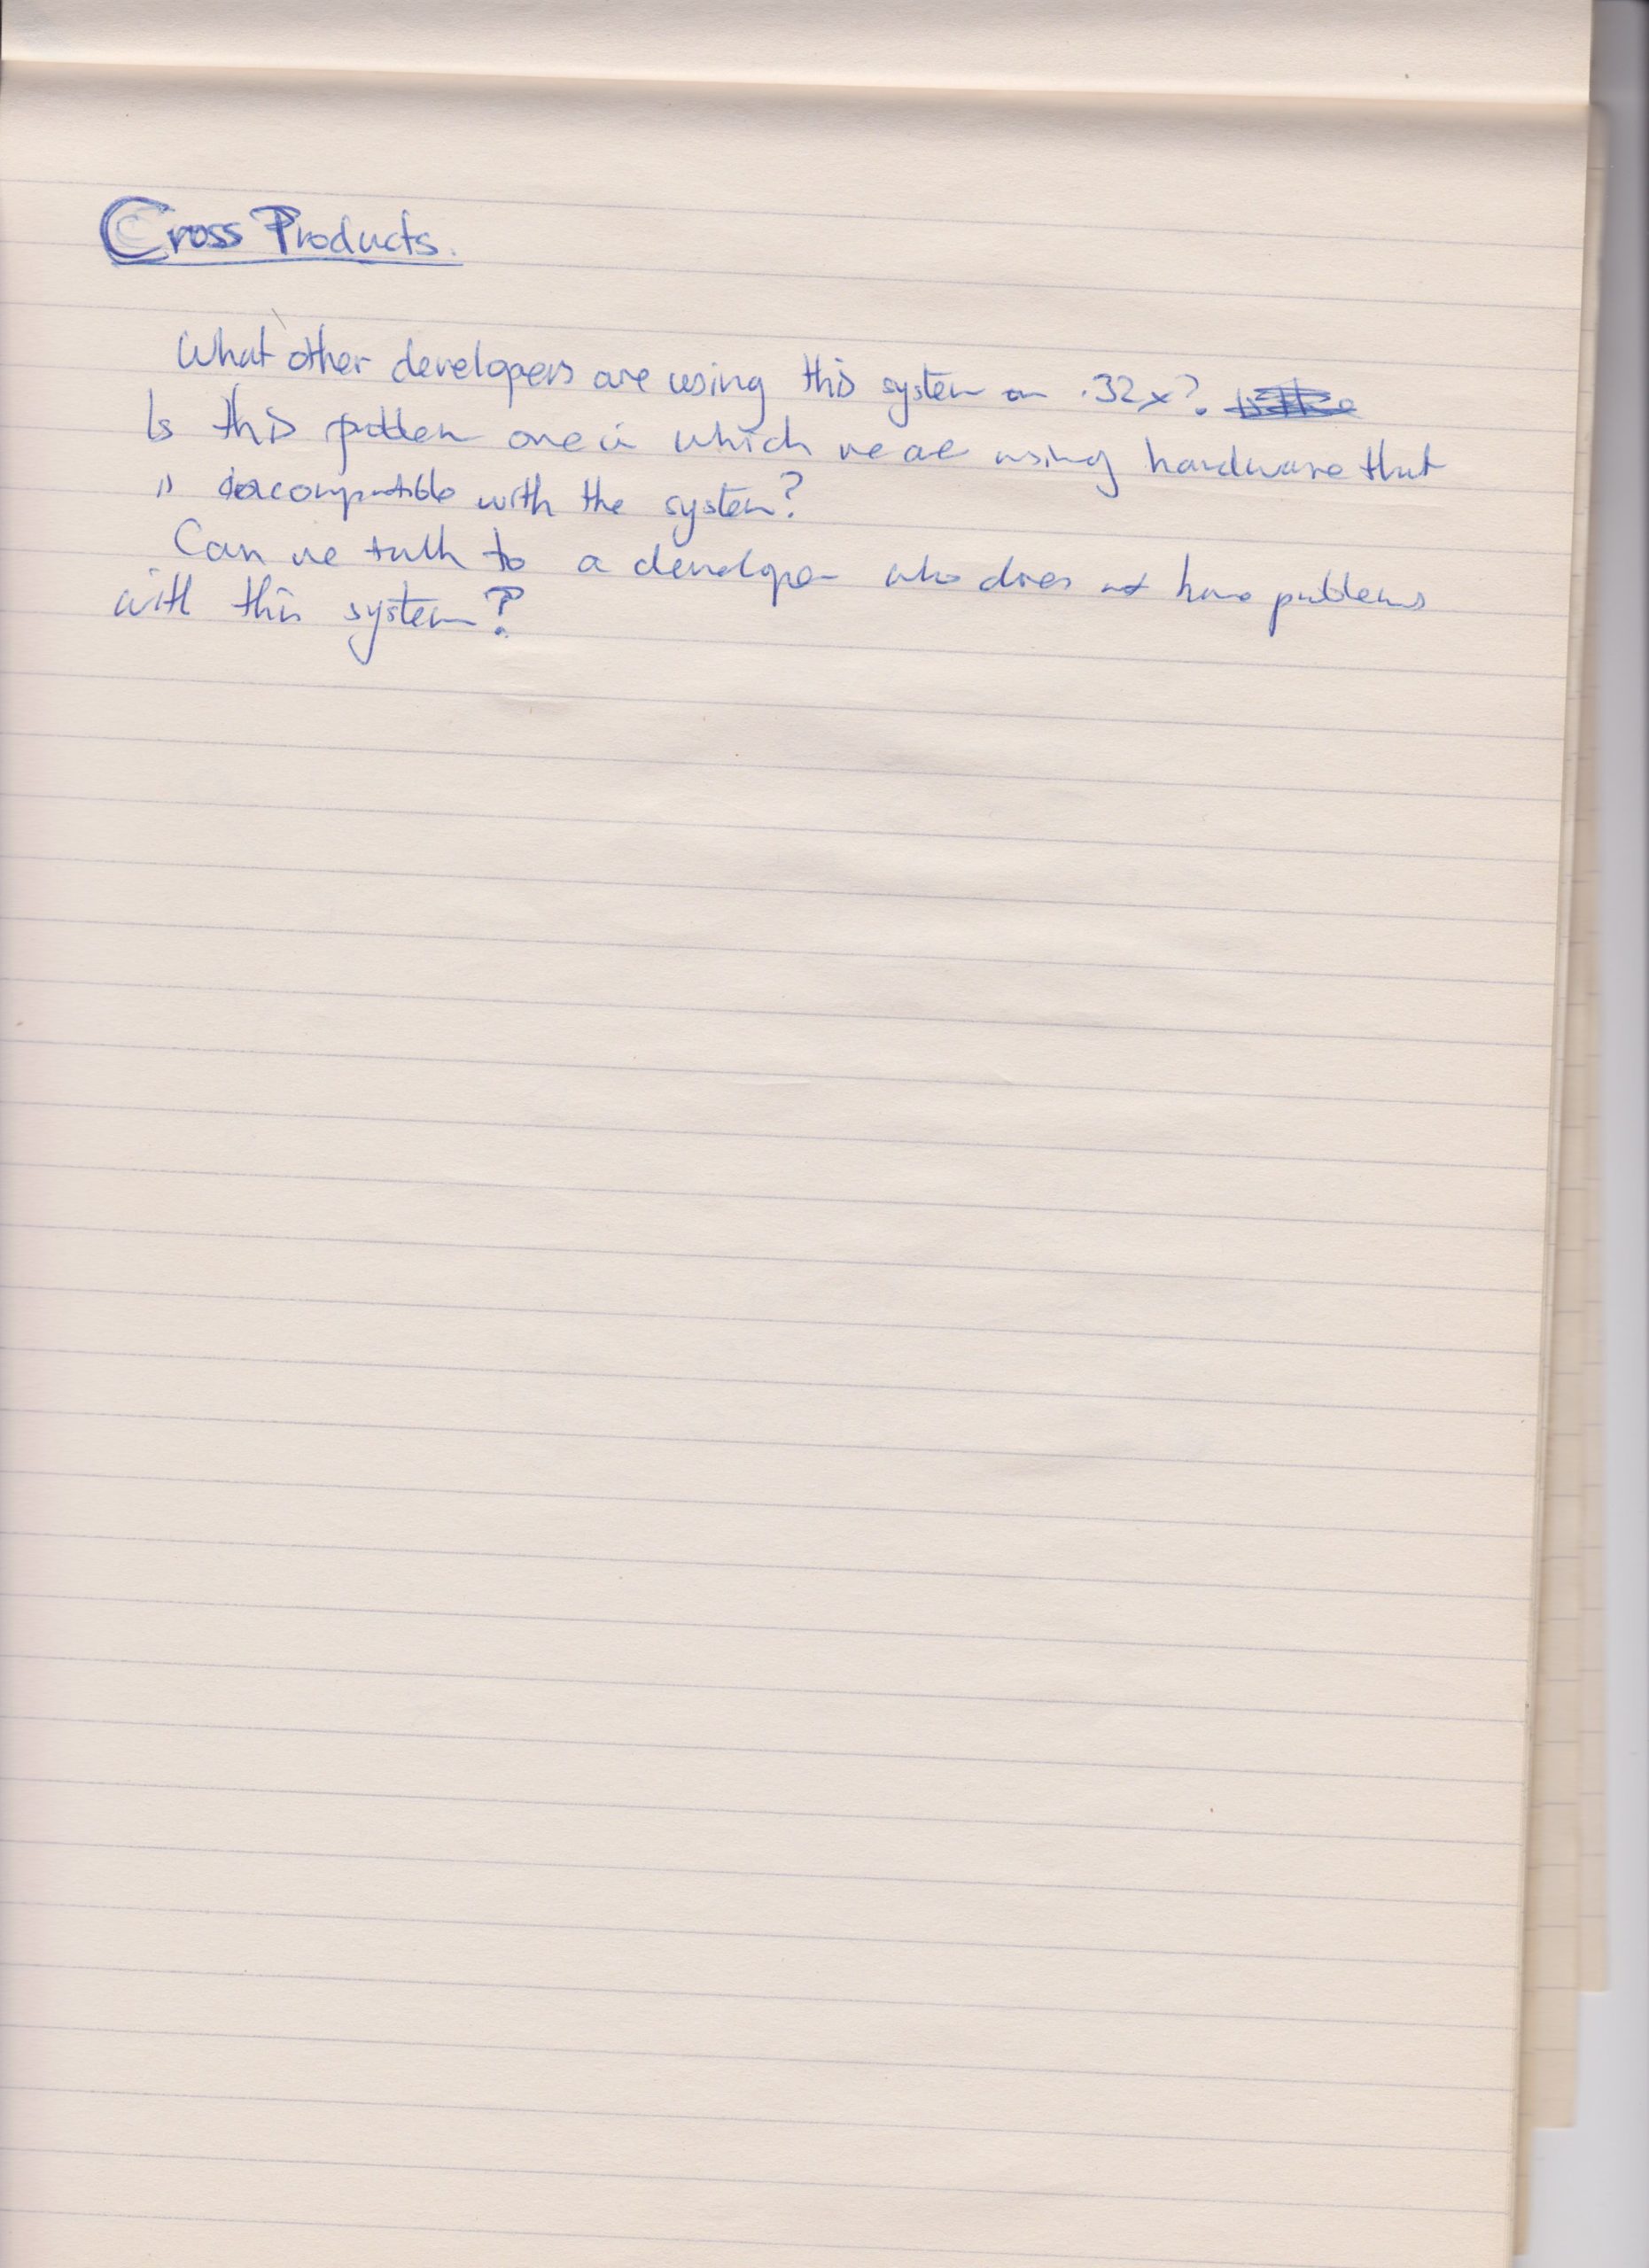 Cross Products.
What other developers are using this system on 32x?
Is this problem one in which we are using hardware that
is incompatible with the system?
Can we talk to a developer who does not have problems
with this system?